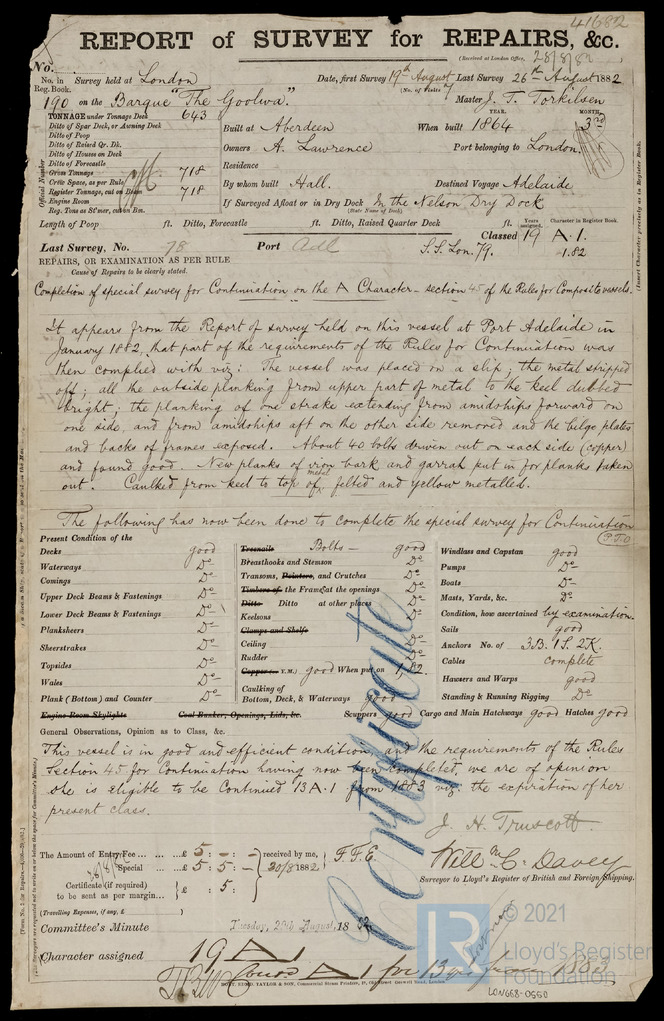 41682
REPORT of SURVEY for REPAIRS, &c.
(Received at London Office, 28/8/82
No.
No. in Reg. Book. Survey held at London Date, first Survey 19th August Last Survey 26th August 1882
(No. of Visits 7)
190 on the Barque "The Goolwa." Master J. T. Torkilsen
TONNAGE under Tonnage Deck 643
Ditto of Spar Deck, or Awning Deck
Ditto of Poop
Ditto of Raised Qr. Dk.
Ditto of Houses on Deck
Ditto of Forecastle
Gross Tonnage 718
Crew Space, as per Rule
Register Tonnage, cut on Beam 718
Engine Room
Reg. Tons as St'mer, cut on Bm.
Official Number
YEAR. MONTH.
Built at Aberdeen When built 1864 3rd
Owners A. Lawrence Port belonging to London
Residence
By whom built Hall. Destined Voyage Adelaide
If Surveyed Afloat or in Dry Dock In the Nelson Dry Dock
(State Name of Dock.)
Length of Poop ft. Ditto, Forecastle ft. Ditto, Raised Quarter Deck ft.
Years assigned. Character in Register Book.
Classed 19 A.1.
1.82
S.S. Lon. 79.
Last Survey, No. 78 Port Adl
REPAIRS, OR EXAMINATION AS PER RULE
Cause of Repairs to be clearly stated.
Completion of special survey for Continuation on the A Character - section 45 of the Rules for Composite vessels.
It appears from the Report of survey held on this vessel at Port Adelaide in
January 1882, that part of the requirements of the Rules for Continuation was
then complied with viz: The vessel was placed on a slip; the metal stripped
off; all the outside planking from upper part of metal to the keel dubbed
bright; the planking of one strake extending from amidships forward on
one side, and from amidships aft on the other side removed and the bilge plates
and backs of frames exposed. About 40 bolts driven out on each side (copper)
and found good. New planks of iron bark and garrah put in for plank taken
out. Caulked from keel to top of metal, felted and yellow metalled.
The following has now been done to complete the special survey for Continuation
(P.T.O)
Present Condition of the
Decks good
Waterways Do
Comings Do
Upper Deck Beams & Fastenings Do
Lower Deck Beams & Fastenings Do
Planksheers Do
Sheerstrakes Do
Topsides Do
Wales Do
Plank (Bottom) and Counter Do
Engine Room Skylights Coal Bunker, Openings, Lids, &c.
Treenails Bolts - good
Breasthooks and Stemson Do
Transoms, Pointers, and Crutches Do
Timbers of the Frame at the openings Do
Ditto Ditto at other places Do
Keelsons Do
Clamps and Shelfs
Ceiling Do
Rudder Do
Copper or Y.M.) good When put on 1,82
Caulking of Bottom, Deck, & Waterways good
Scuppers good Cargo and Main Hatchways good Hatches good
Windlass and Capstan good
Pumps Do
Boats Do
Masts, Yards, &c. Do
Condition, how ascertained by examination
Sails good
Anchors No. of 3B. 1S. 2K.
Cables complete
Hawsers and Warps good
Standing & Running Rigging Do
General Observations, Opinion as to Class, &c.
This vessel is in good and efficient condition, and the requirements of the Rules
Section 45 for Continuation having now been completed, we are of opinion
she is eligible to be Continued 13 A.1 from 1883 viz. the expiration of her
present class.
Certificate
J. H. Truscott.
The Amount of Entry Fee ... £ 5 - : - received by me,
Special ... £ 5 : 5 : - 30/8 1882
Certificate (if required) to be sent as per margin... £ : 5 :
F.F.E.
Willm C. Davey
Surveyor to Lloyd's Register of British and Foreign Shipping.
(Travelling Expenses, if any, £ )
Committee's Minute Tuesday, 29th August, 1882
Character assigned 19 A 1
Cont'd A 1 for 13 yrs from 1883
© 2021
LR
Lloyd's Register
Foundation
LON668-0550